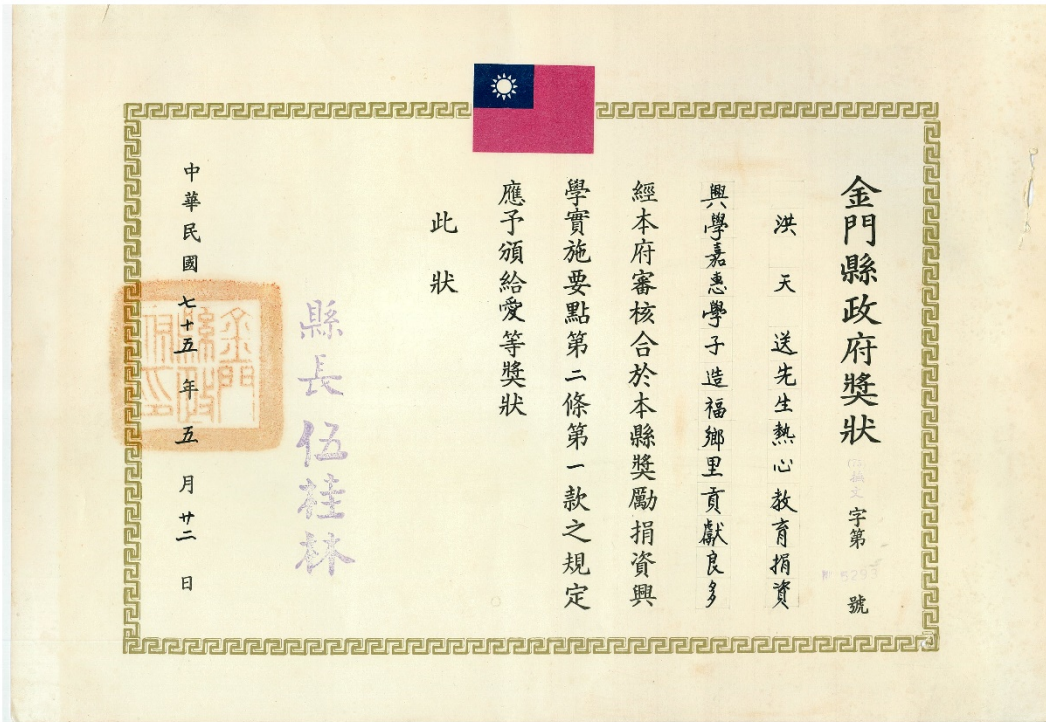 金門縣政府獎狀
字第 5293 號
洪天送先生熱心教育捐資
興學嘉惠學子造福鄉里貢獻良多
經本府審核合於本縣獎勵捐資興
學實施要點第二條第一款之規定
應予頒給愛等獎狀
此狀
縣長 伍桂林
中華民國七十五年五月廿二日